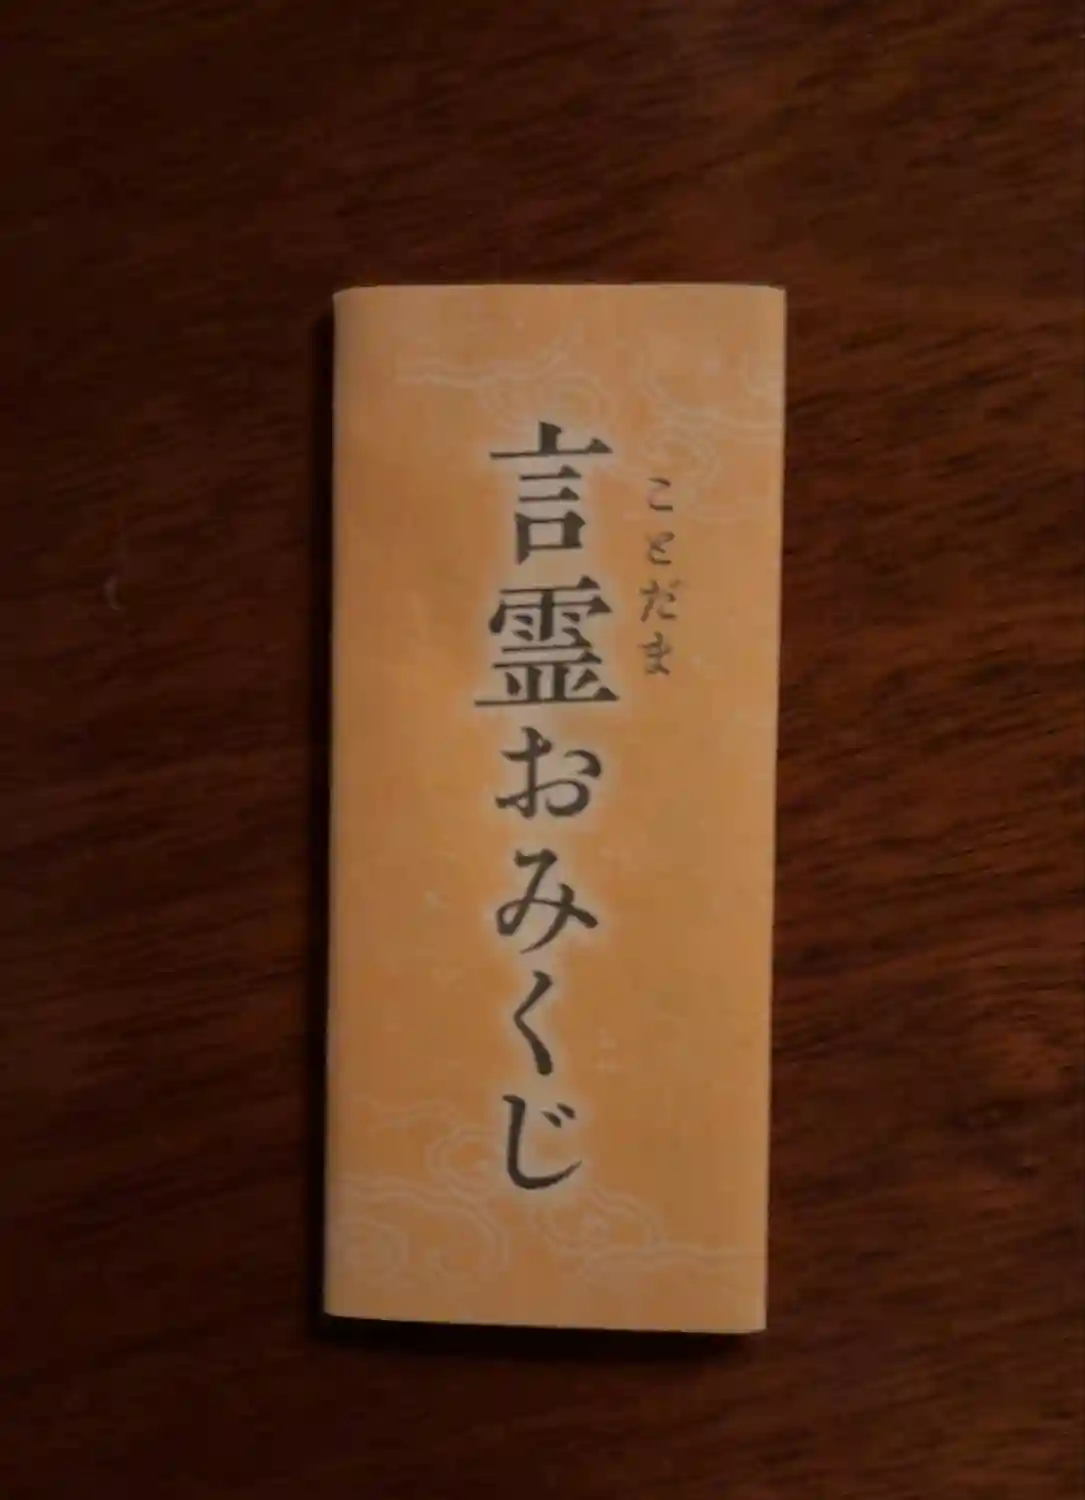 ことだま
言霊おみくじ